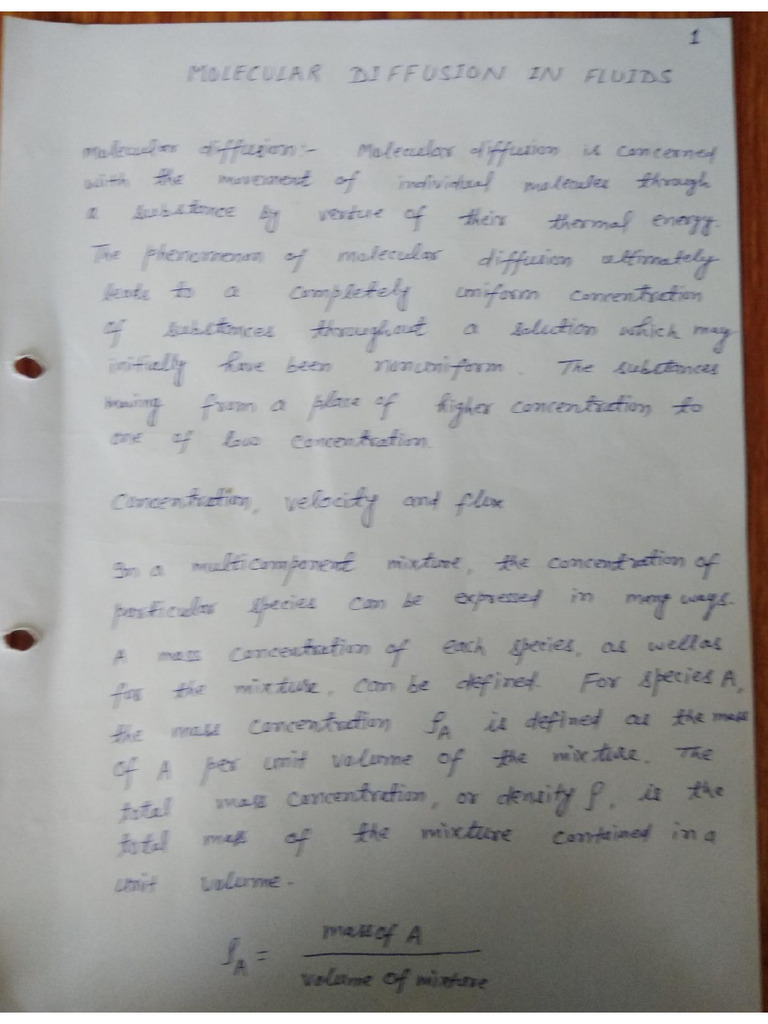 1
MOLECULAR DIFFUSION IN FLUIDS
Molecular diffusion:- Molecular diffusion is concerned
with the movement of individual molecules through
a substance by vertue of their thermal energy.
The phenomenon of molecular diffusion ultimately
leads to a completely uniform concentration
of substances throughout a solution which may
initially have been nonuniform. The substances
moving from a place of higher concentration to
one of low concentration.
Concentration, velocity and flux
In a multicomponent mixture, the concentration of
particular species can be expressed in many ways.
A mass concentration of each species, as well as
for the mixture, can be defined. For species A,
the mass concentration ρ_A is defined as the mass
of A per unit volume of the mixture. The
total mass concentration, or density ρ, is the
total mass of the mixture contained in a
unit volume.
ρ_A = mass of A / volume of mixture